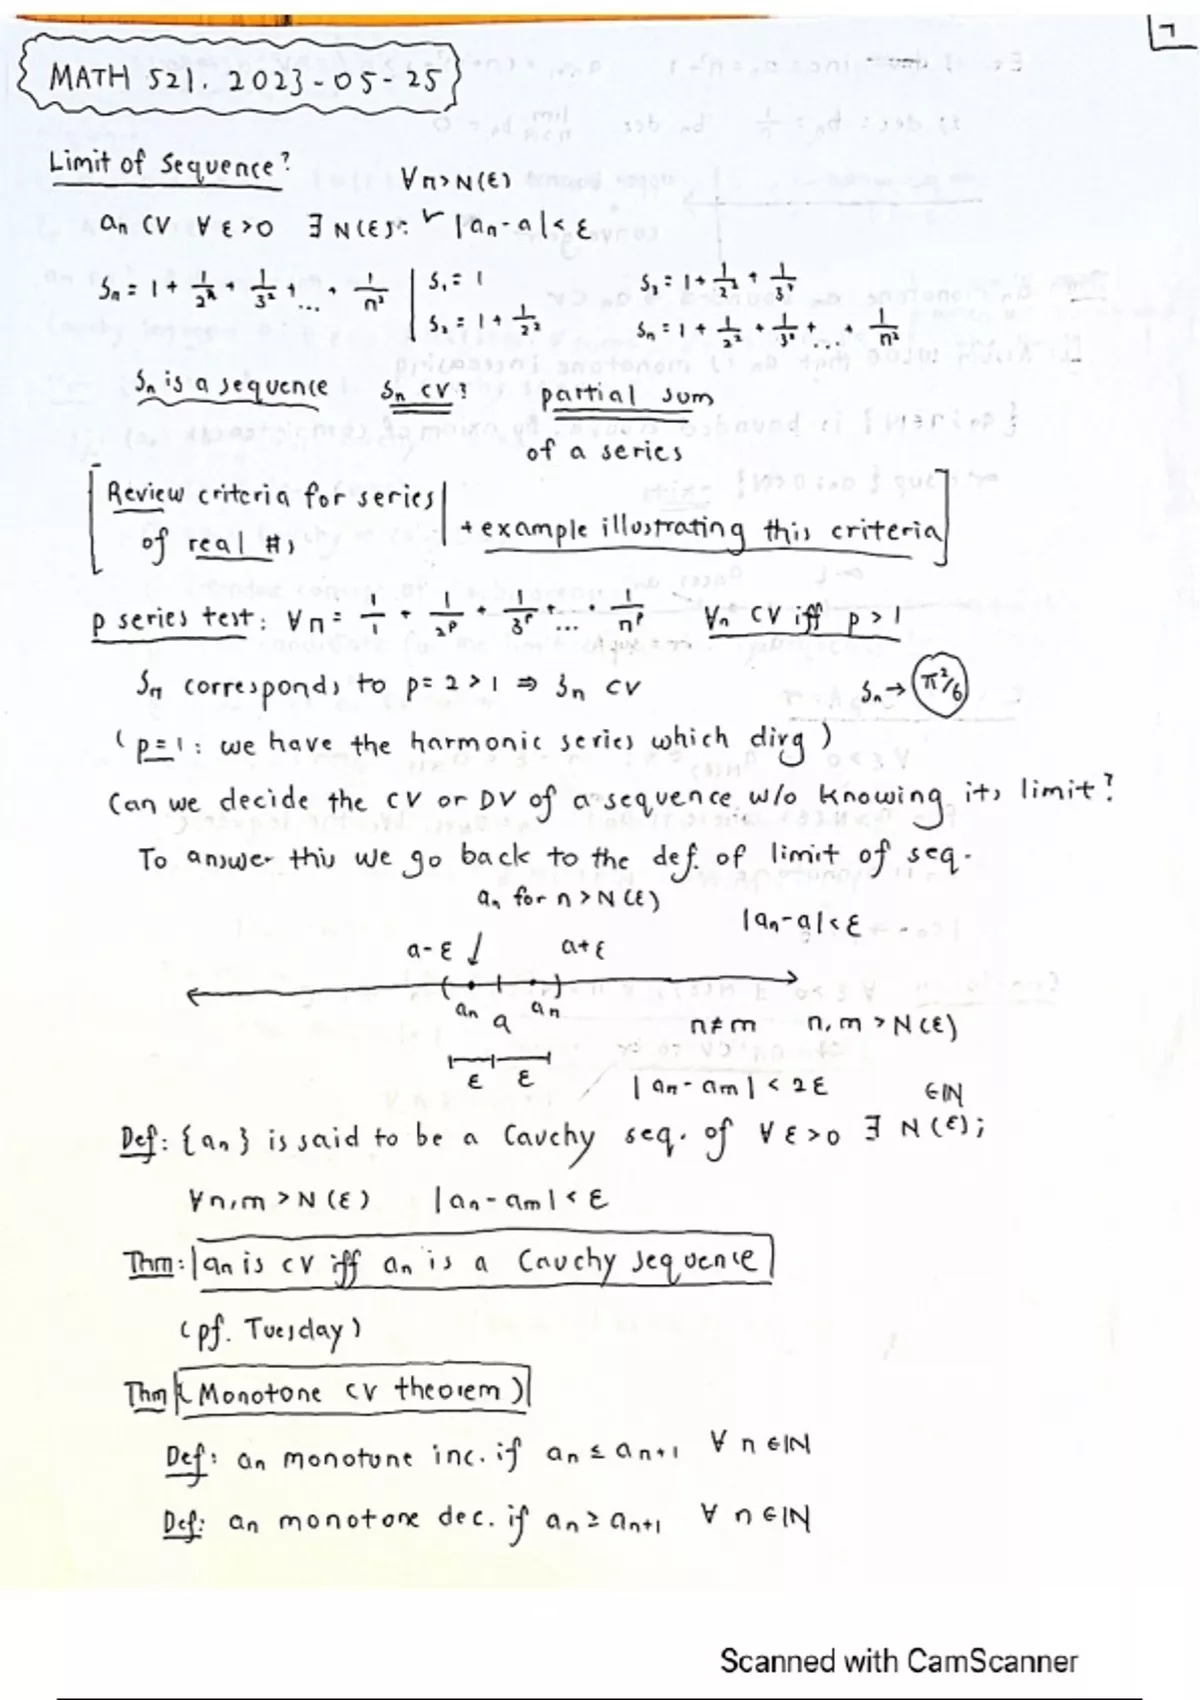 MATH 521. 2023-05-25
Limit of sequence?
∀n>N(ε)
an CV ∀ε>0 ∃N(ε): |an-a|<ε
Sn = 1 + 1/2² + 1/3² + ... + 1/n² | S₁ = 1
S₂ = 1 + 1/2²
S₃ = 1 + 1/2² + 1/3²
Sn = 1 + 1/2² + 1/3² + ... + 1/n²
Sn is a sequence Sn CV? partial sum
of a series
[Review criteria for series
of real #s
+ example illustrating this criteria]
p series test: ∀n = 1/1 + 1/2ᵖ + 1/3ᵖ + ... + 1/nᵖ Vn CV iff p>1
Sn corresponds to p=2>1 ⇒ Sn CV Sn→ π²/6
(p=1: we have the harmonic series which dirg)
Can we decide the CV or DV of a sequence w/o knowing its limit?
To answer this we go back to the def. of limit of seq.
an for n>N(ε)
|an-a|<ε
a-ε a+ε
an a an
n≠m n,m>N(ε)
ε ε
|an-am|<2ε
∈ℕ
Def: {an} is said to be a Cauchy seq. of ∀ε>0 ∃N(ε);
∀n,m>N(ε) |an-am|<ε
Thm: an is CV iff an is a Cauchy sequence
(pf. Tuesday)
Thm (Monotone CV theorem)
Def: an monotone inc. if an≤an+1 ∀n∈ℕ
Def: an monotone dec. if an≥an+1 ∀n∈ℕ
Scanned with CamScanner